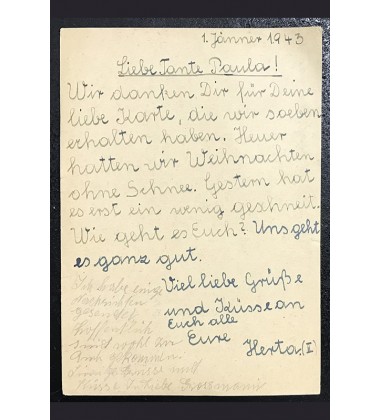 1. Jänner 1943
Liebe Tante Paula!
Wir danken Dir für Deine
liebe Karte, die wir soeben
erhalten haben. Heuer
hatten wir Weihnachten
ohne Schnee. Gestern hat
es erst ein wenig geschneit.
Wie geht es Euch? Uns geht
es ganz gut.
Viel liebe Grüße
und Küsse an
Euch alle
Eure
Herta (I)
Ich habe einige
Nachrichten
gesendet
hoffentlich
sind
und
Küsse